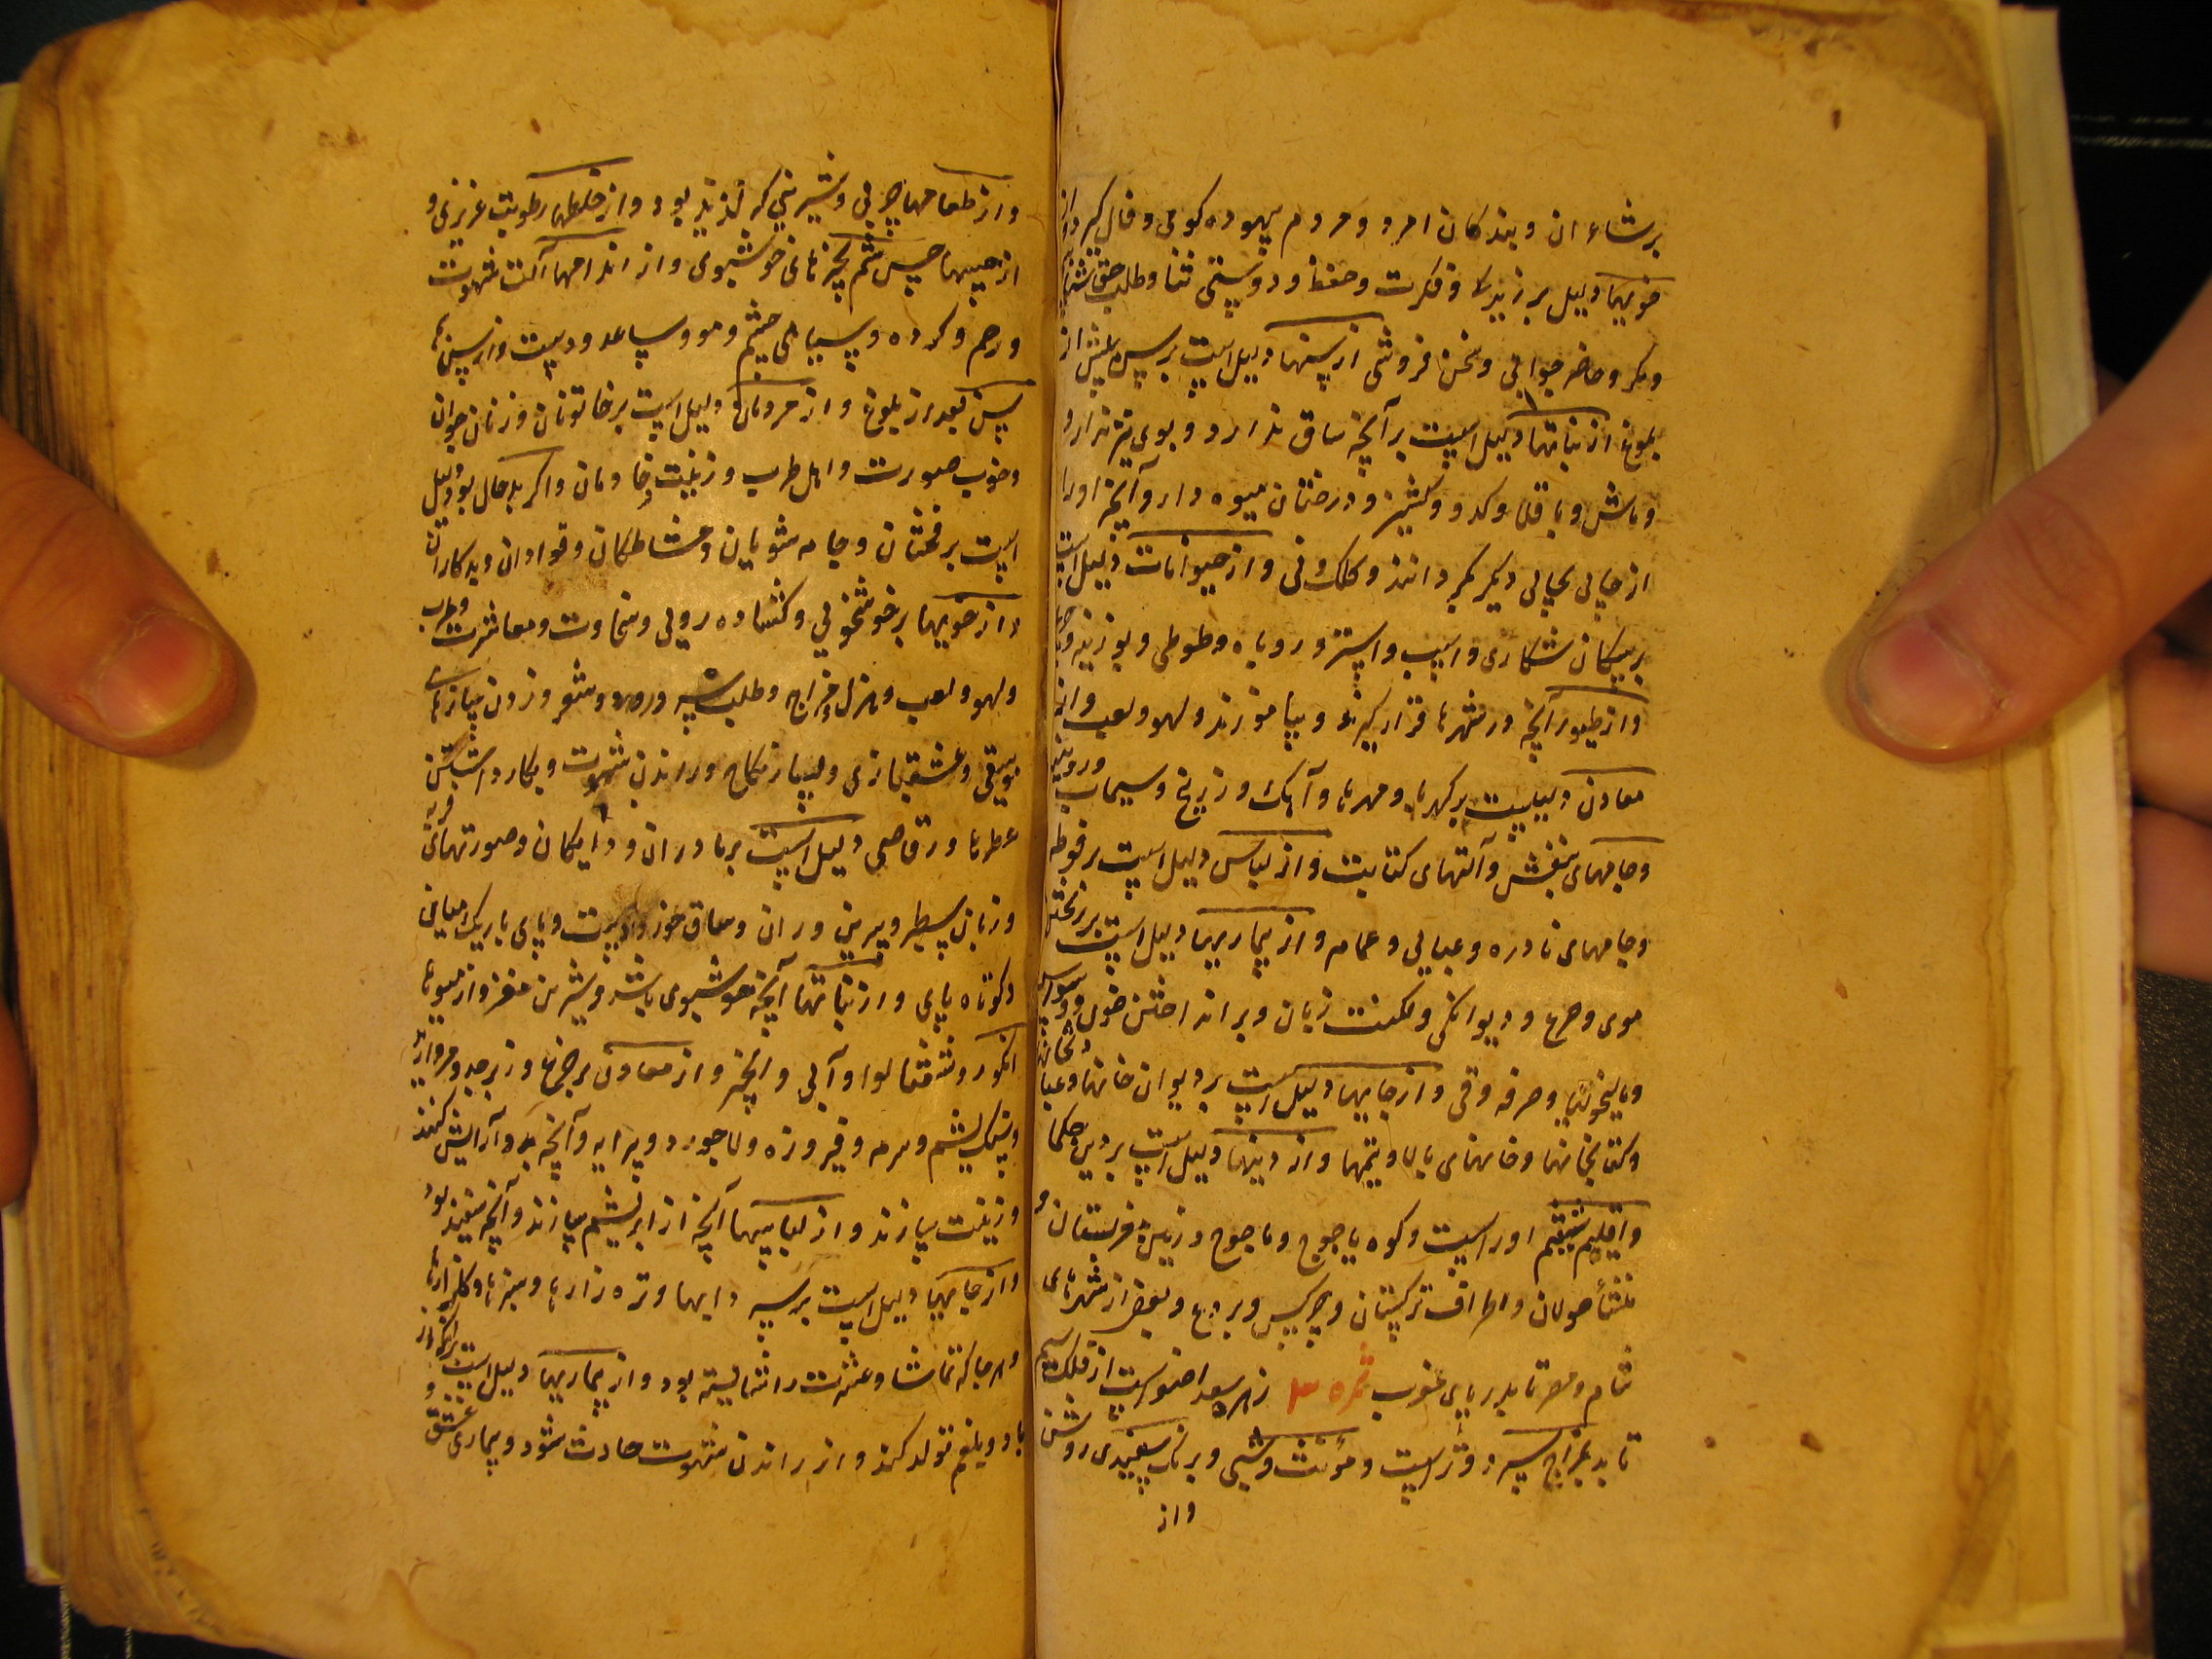 بر شاعران و بندکان امرد و مردم بیهوده کوی و فال کیر و از
خویها دلیل بر زیرکی و فکرت و حفظ و دوستی ثنا و طلب حق شناسی
و مکر و حاضر جوابی و سخن فروشی از سنها دلیل است بر سن پیش از
بلوغ از نباتها دلیل است بر آنچه ساق ندارد و بوی تیز ندارد
و ماش و باقلا و کدو و کشنیز و درختان میوه دار و آنچه او را
از جای بجای دیکر برند و کلک و نی و از حیوانات دلیل است
بر سکان شکاری و اسب و استر و روباه و طوطی و بوزینه
و از طیور آنچه در شهرها قرار کیرند و بیاموزند و لهو و لعب و از
معادن دلیلست بر کهربا و مهرها و آهک و زرنیخ و سیماب
و جامهای بنفش و آلتهای کتابت و از لباس دلیل است بر فوطه
و جامهای نادره و عبایی و عمامه و از بیماریها دلیل است بر ریختن
موی و صرع و دیوانکی و لکنت زبان و بر انداختن خون و وسواس
و مالیخولیا و سرفه و قی و از جایها دلیل است بر دیوان خانها و
و کتابخانها و خانهای بالا و تیمها و از دینها دلیل است بر دین حکما
و اقلیم ششم او راست و کوه یاجوج و ماجوج و زمین فرنستان و
منشأ مولان و اطراف ترکستان و چرکس و بردع و بعضی از شهرهای
شام و مصر تا بدریای غرب ثمره ۳ زهره سعد اصغرست از فلک سیم
تابد بمزاج سرد و تر است و مؤنث و شبی و برنک سپیدی روشن
و از
و از طعامها چربی و شیرینی که لذیذ بود و از خلطها رطوبت غریزی و
از حسها حس شم بچیزهای خوشبوی و از اندامها آلت شهوت
و رحم و کرده و سیاهی چشم و مو و ساعد و دست و از سنها
سن بعد از بلوغ و از مردمان دلیل است بر خاتونان و زنان جوان
و خوب صورت و اهل طرب و زینت و خادمان و اکر بدحال بود دلیل
است بر مخنثان و جامه شویان و مشاطکان و قوادان و بدکاران
و از خویها بر خوشخویی و کشاده رویی و سخاوت و معاشرت و طرب
و لهو و لعب و هزل و مزاح و طلب شبه و سرود و شعر و زدن سازهای
موسیقی و عشقبازی و بسیار نکاح و راندن شهوت و بکار داشتن
عطرها و رقاصی دلیل است بر مادران و دایکان و صورتهای فربه
و زنان سطبر و سرین و ران و ساق خورد دست و پای باریک میان
و کوتاه پای و از نباتها آنچه خوشبوی باشد و شیرین مغز و از میوها
انکور و شفتالو و آبی و انجیر و از معادن بر جزع و زبرجد و مروارید
و سنک یشم و سرمه و فیروزه و لاجورد و پیرایه و آنچه بدو آرایش کنند
و زینت سازند و از لباسها آنچه از ابریشم سازند و آنچه سفید بود
و از جایها دلیل است بر سه دایها و تره زارها و سبزها و کلزارها
و هر جا که تماشا و عشرت را شایسته بود و از بیماریها دلیل است بر آنکه از
باد و بلغم تولد کند و از راندن شهوت حادث شود و بیماری عشق و